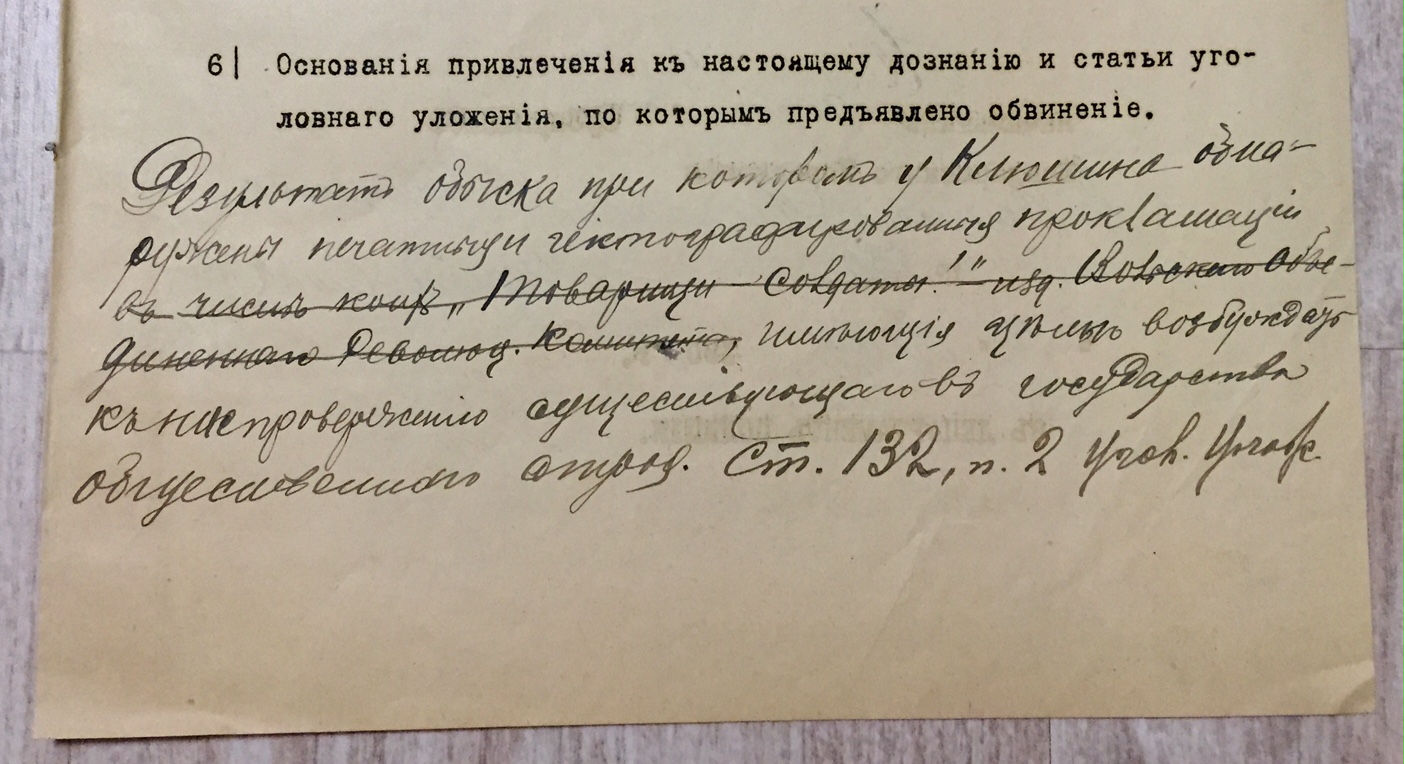 6| Основанія привлеченія къ настоящему дознанію и статьи уго-
ловнаго уложенія, по которымъ предъявлено обвиненіе.
Результатъ обыска при которомъ у Клюшина обна-
ружены печатныя гектографированныя прокламаціи
въ числѣ коихъ „Товарищи солдаты!" изд. Объе-
диненнаго Революц. Комитета, имѣющія цѣлью возбуждать
къ ниспроверженію существующаго въ государствѣ
общественнаго строя. Ст. 132, п. 2 Угол. Улож.